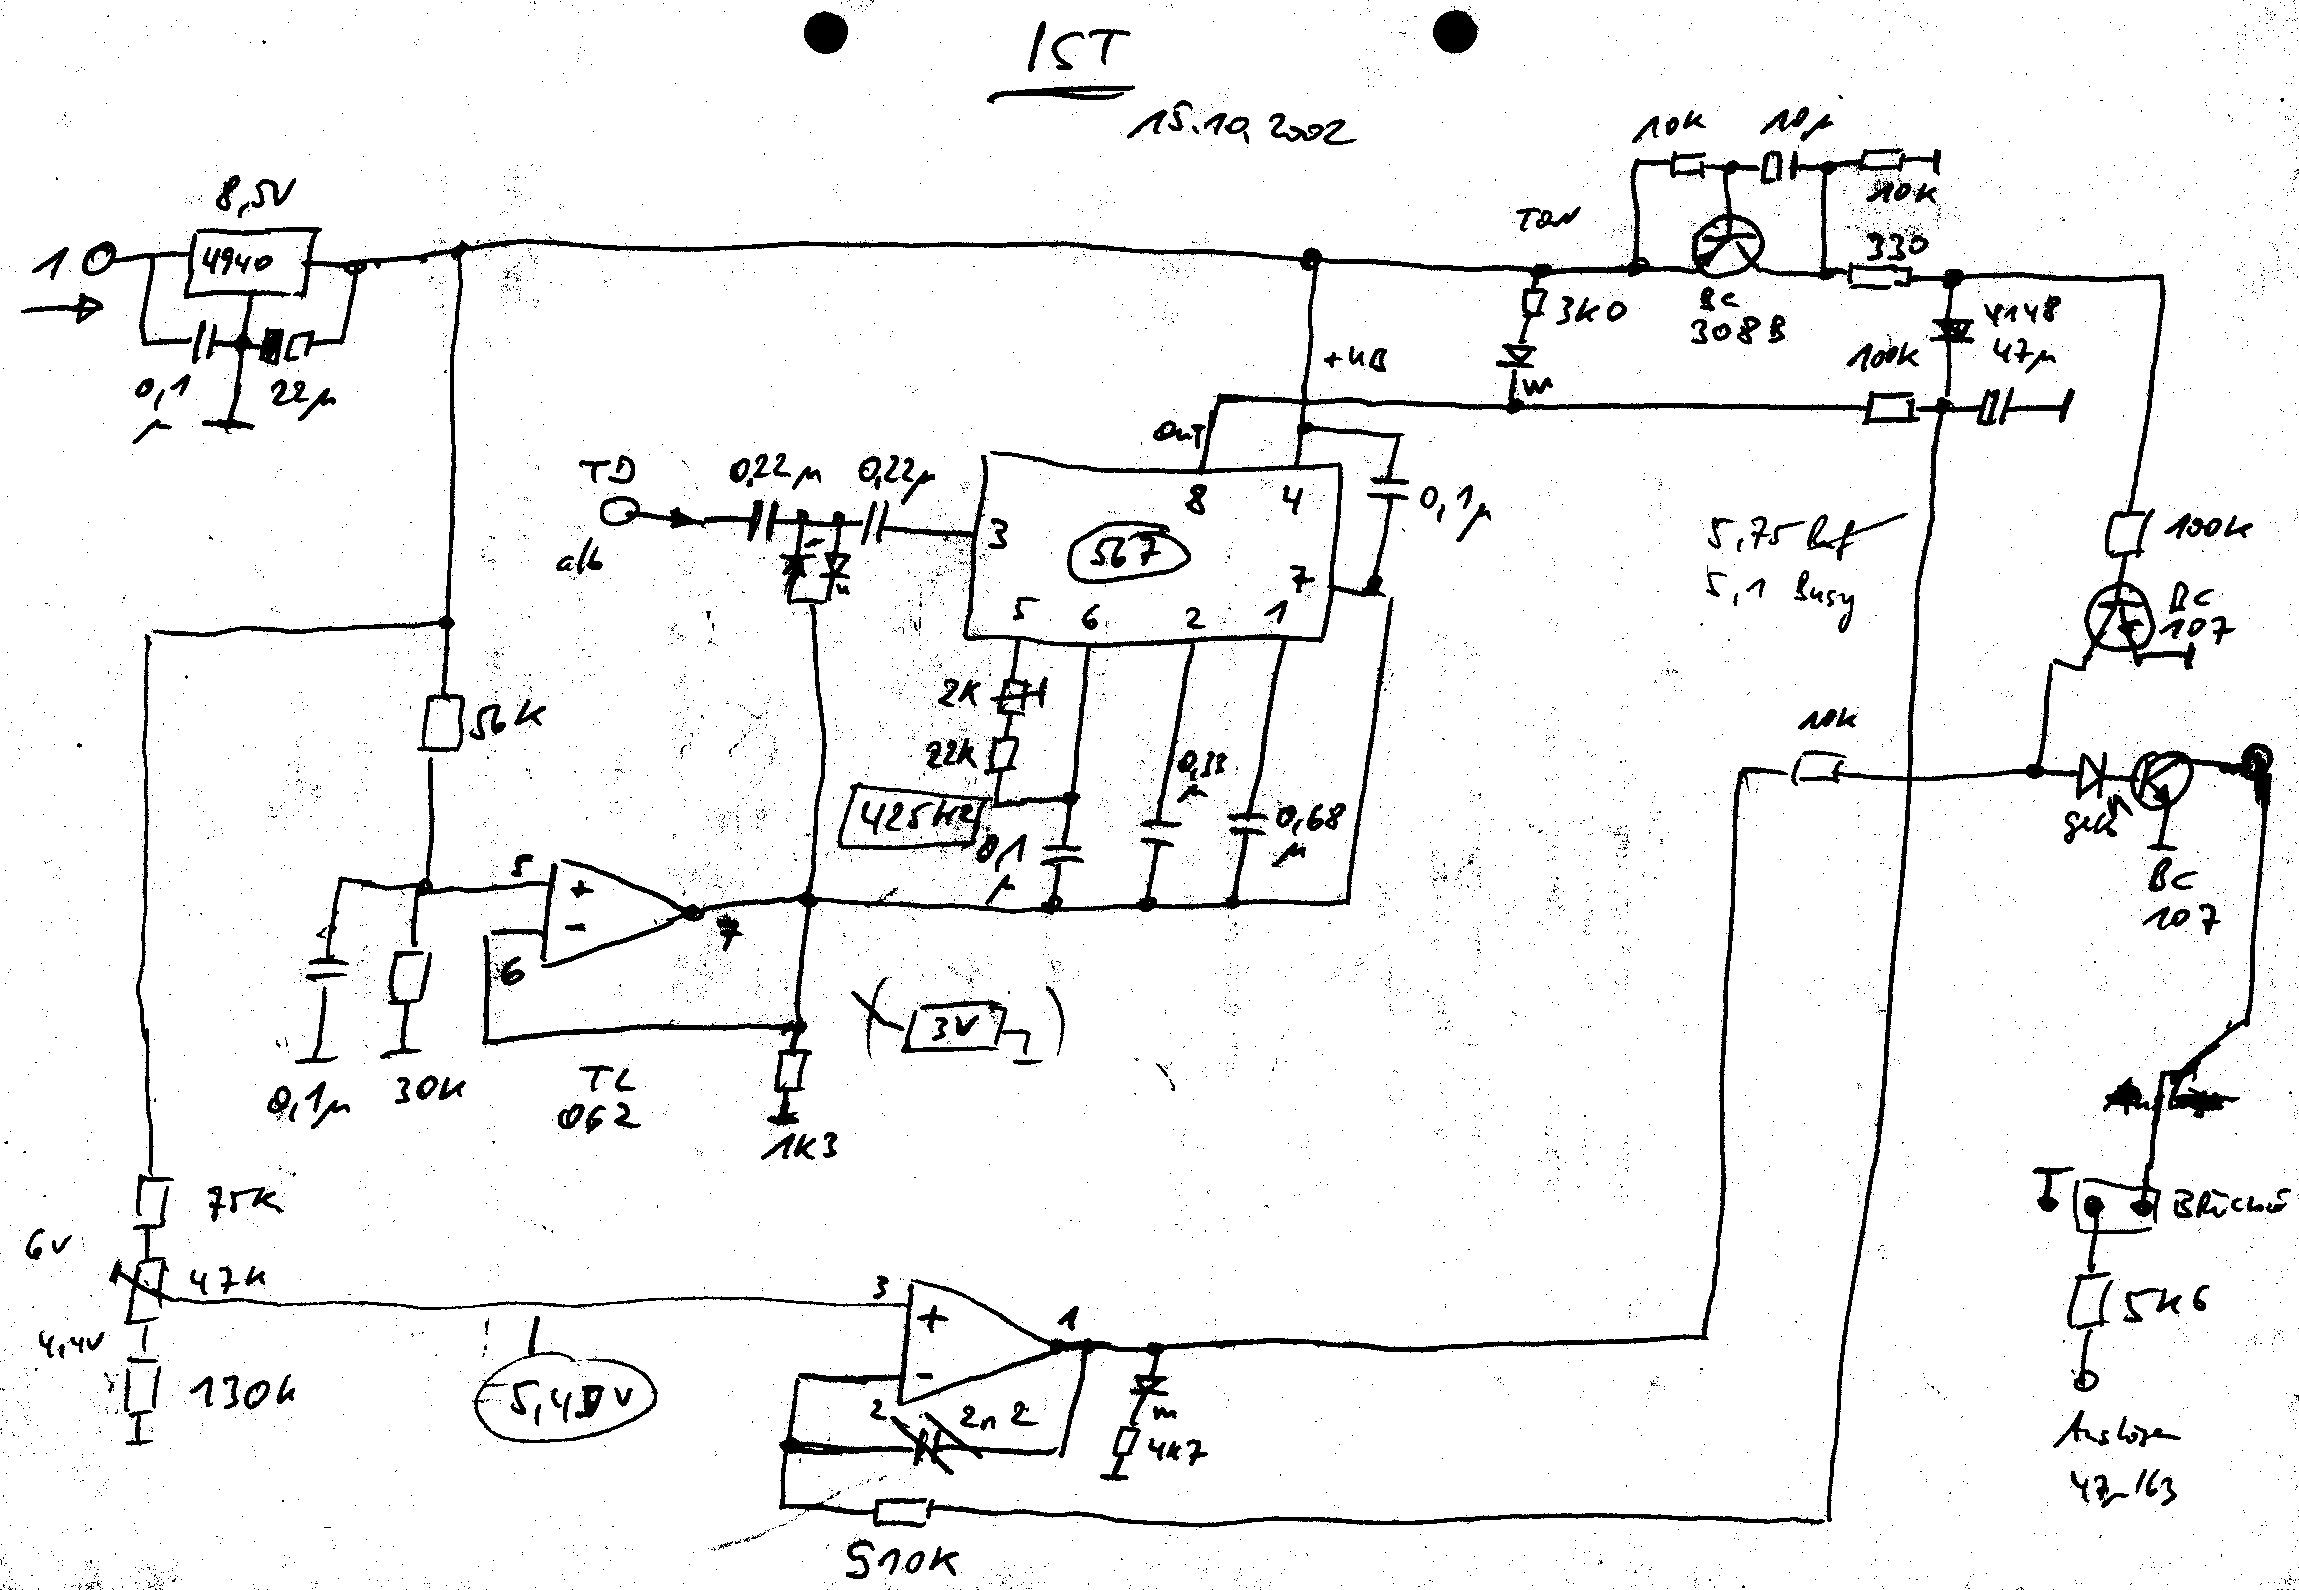 IST
15.10.2002
10K
10µ
10K
8,5V
1
4940
TON
330
3K0
BC
308B
4148
47µ
100K
+UB
0,1
µ
22µ
OUT
TD
0,22µ
0,22µ
8
4
0,1µ
3
567
7
5
6
2
1
5,75 Ruf
5,1 Busy
100K
BC
107
2K
22K
56K
10K
0,33
µ
425Hz
0,1
µ
0,68
µ
gelb
BC
107
5
+
-
6
7
3V
0,1µ
30K
TL
062
1K3
75K
6V
47K
4,4V
130K
3
+
1
-
2
2n2
4K7
510K
Brücke
5K6
Auslösen
47-163